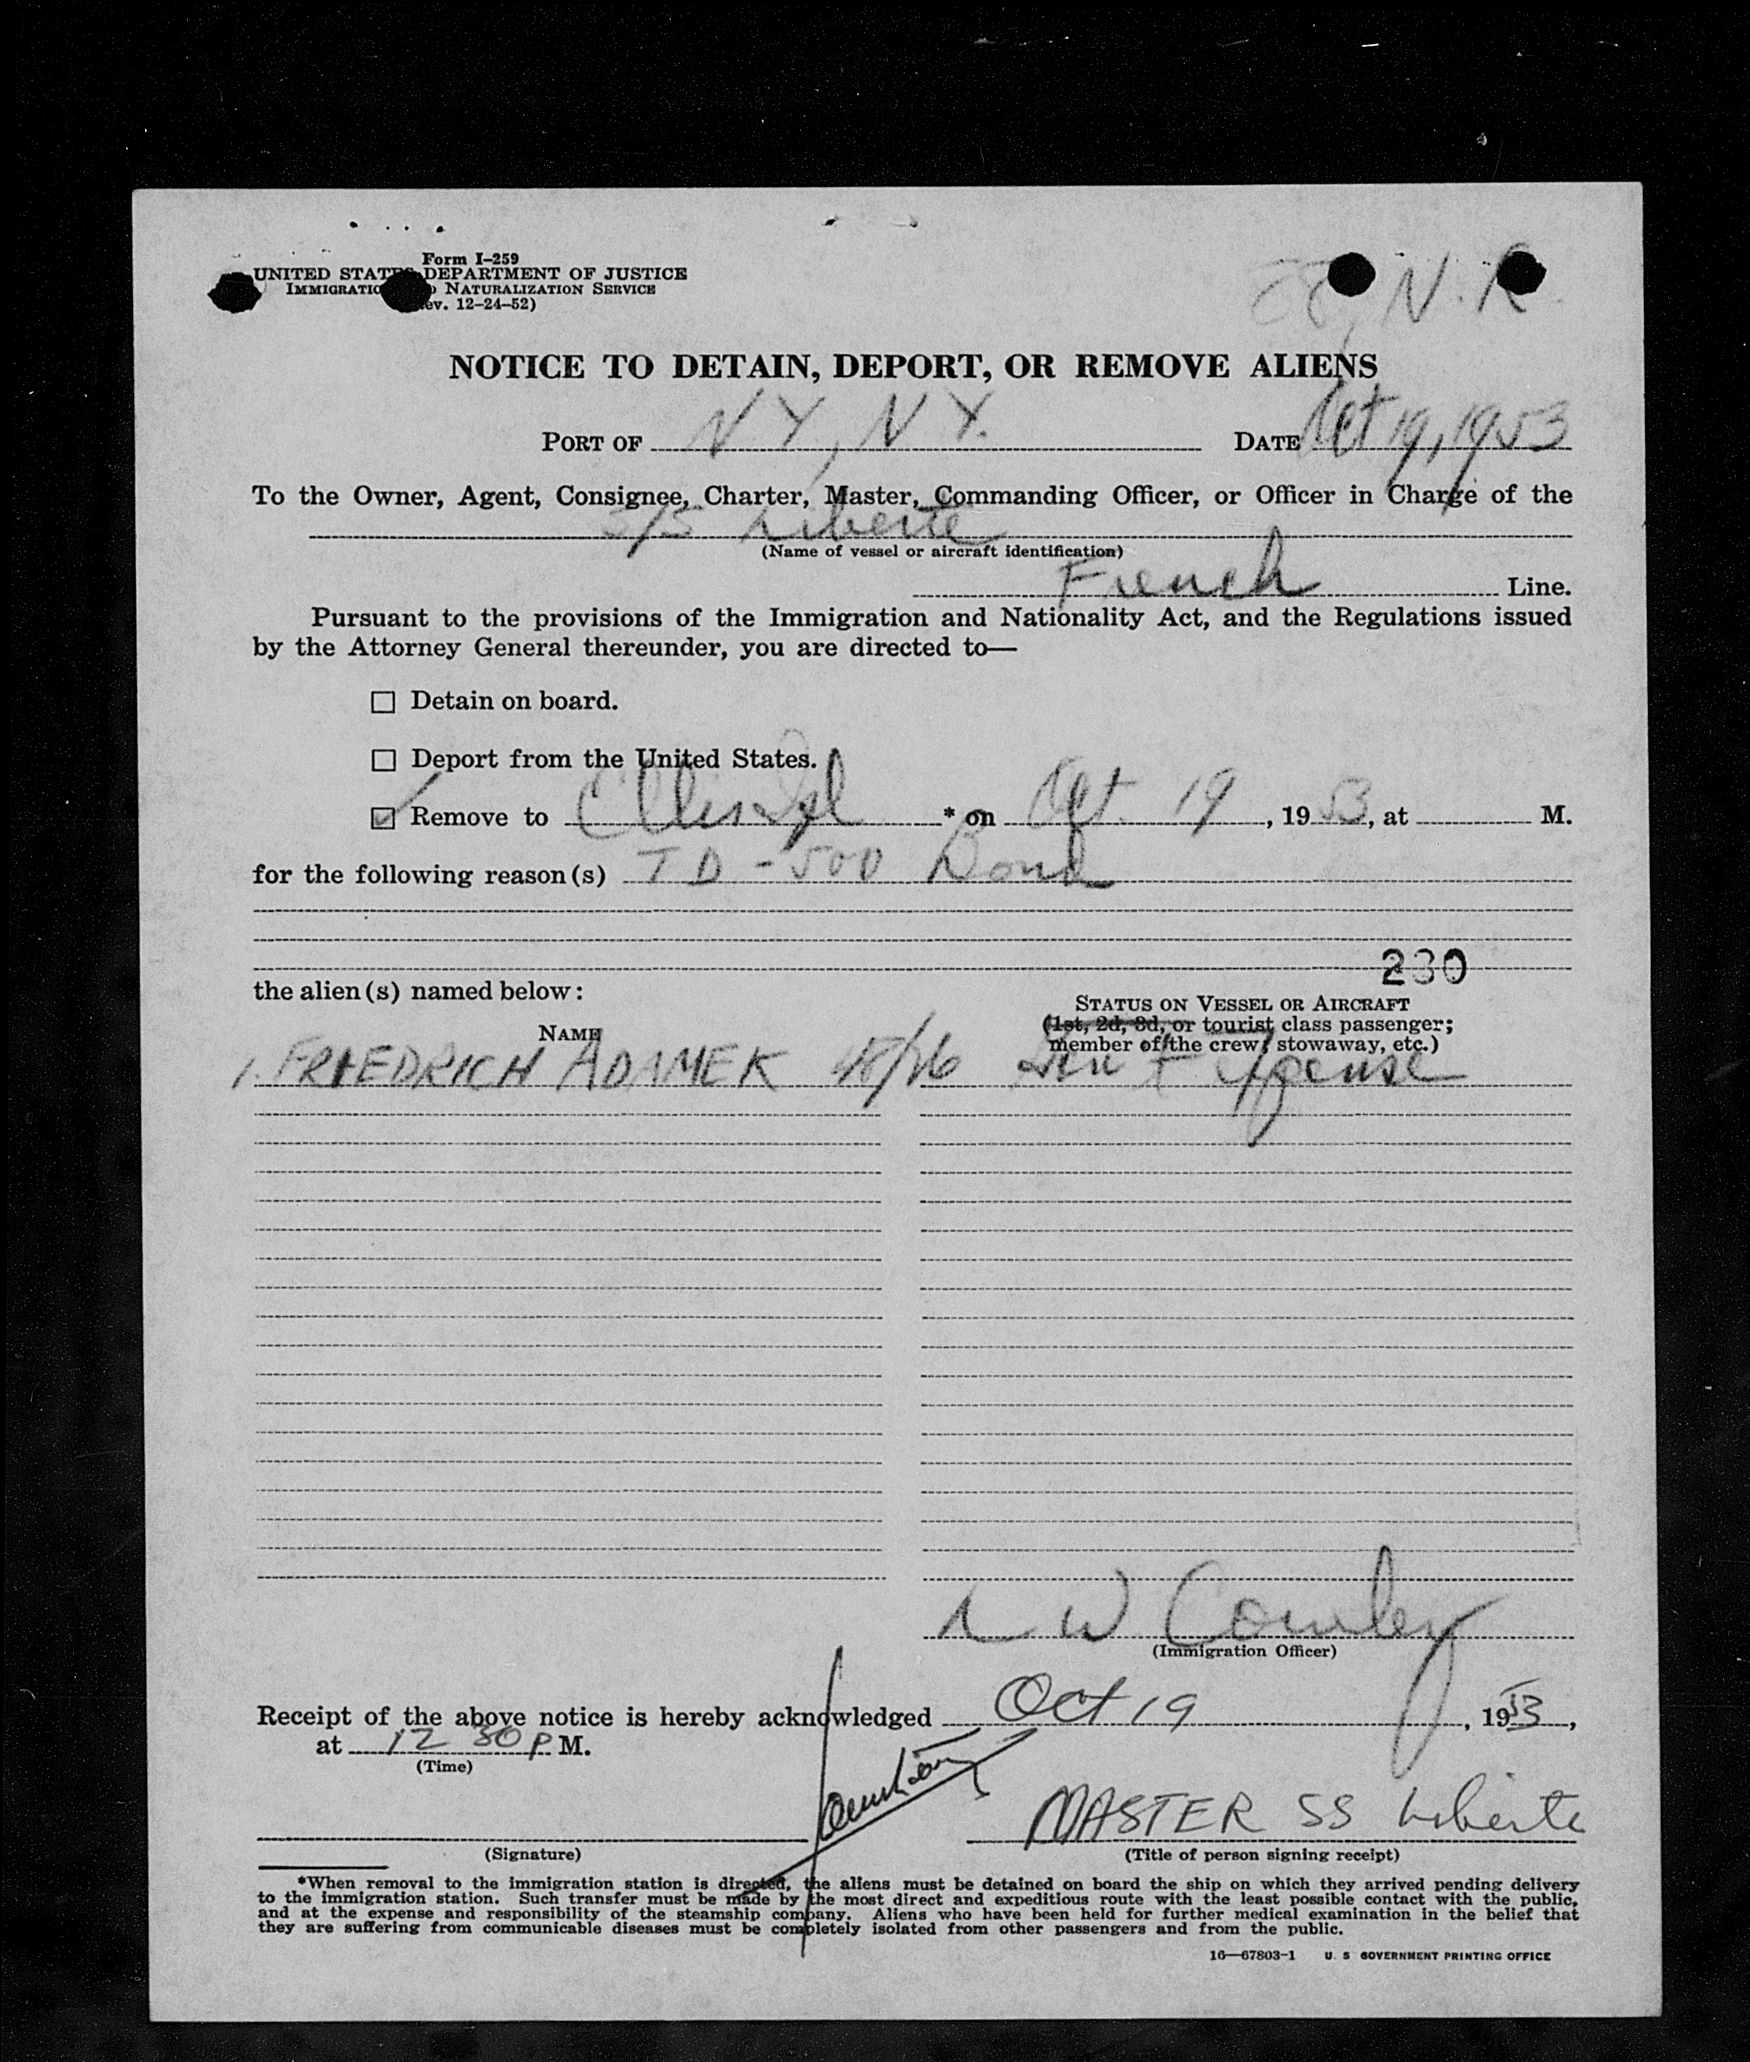 Form I-259
UNITED STATES DEPARTMENT OF JUSTICE
IMMIGRATION AND NATURALIZATION SERVICE
(Rev. 12-24-52)
N. R.
NOTICE TO DETAIN, DEPORT, OR REMOVE ALIENS
PORT OF N Y, N Y. DATE Oct 19, 1953
To the Owner, Agent, Consignee, Charter, Master, Commanding Officer, or Officer in Charge of the
S/S Liberte
(Name of vessel or aircraft identification)
French Line.
Pursuant to the provisions of the Immigration and Nationality Act, and the Regulations issued
by the Attorney General thereunder, you are directed to—
☐ Detain on board.
☐ Deport from the United States.
☑ Remove to Ellis Isl * on Oct. 19, 1953, at M.
for the following reason(s) TD-500 Bond
230
the alien(s) named below:
STATUS ON VESSEL OR AIRCRAFT
NAME (1st, 2d, 3d, or tourist class passenger;
member of the crew, stowaway, etc.)
1. FRIEDRICH ADAMEK 48/26 Expense
L W Cowley
(Immigration Officer)
Receipt of the above notice is hereby acknowledged Oct 19, 1953,
at 12 30 P M.
(Time)
MASTER SS Liberte
(Signature) (Title of person signing receipt)
*When removal to the immigration station is directed, the aliens must be detained on board the ship on which they arrived pending delivery
to the immigration station. Such transfer must be made by the most direct and expeditious route with the least possible contact with the public,
and at the expense and responsibility of the steamship company. Aliens who have been held for further medical examination in the belief that
they are suffering from communicable diseases must be completely isolated from other passengers and from the public.
16—67803-1 U. S GOVERNMENT PRINTING OFFICE